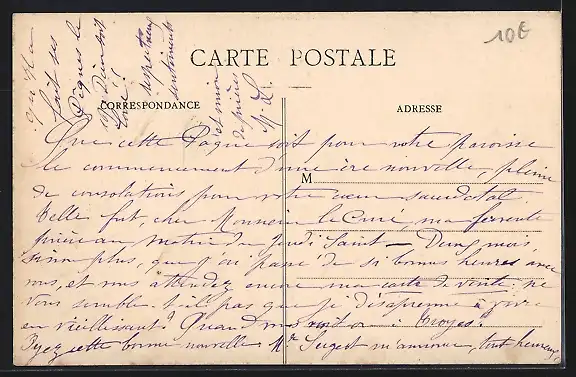 10€
CARTE POSTALE
CORRESPONDANCE
ADRESSE
M
Que cette Pâque soit pour votre paroisse
le commencement d'une ère nouvelle, pleine
de consolations pour votre cœur sacerdotal.
Telle fut, cher Monsieur le Curé, ma fervente
prière au matin du Jeudi Saint — Deux mois,
sinon plus, que j'ai passé de si bonnes heures avec
vous, et vous attendez encore ma carte de visite: ne
vous semble-t-il pas que je désapprenne à vivre
en vieillissant? Quand vous voit-on à Troyes?
Ayez cette bonne nouvelle. Mr Sergent m'annonce, tout heureux,
qu'il a
fait ses
Pâques le
Dieu soit
loué!
respectueux
sentiments
et union
de prières